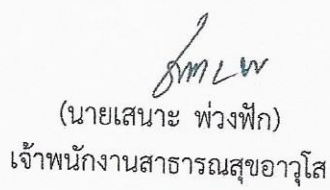 (นายเสนาะ พ่วงฟัก)
เจ้าพนักงานสาธารณสุขอาวุโส